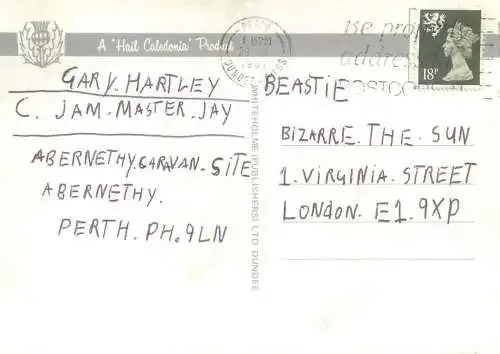 A "Hail Caledonia" Product
GARY. HARTLEY
C. JAM. MASTER. JAY
ABERNETHY. CARAVAN. SITE
ABERNETHY.
PERTH. PH. 9LN
WHITEHOLME (PUBLISHERS) LTD. DUNDEE
PERTH
1987
Be prop
address
POSTCO
18P
BEASTIE
BIZARRE. THE. SUN
1. VIRGINIA. STREET
LONDON. E1. 9XP